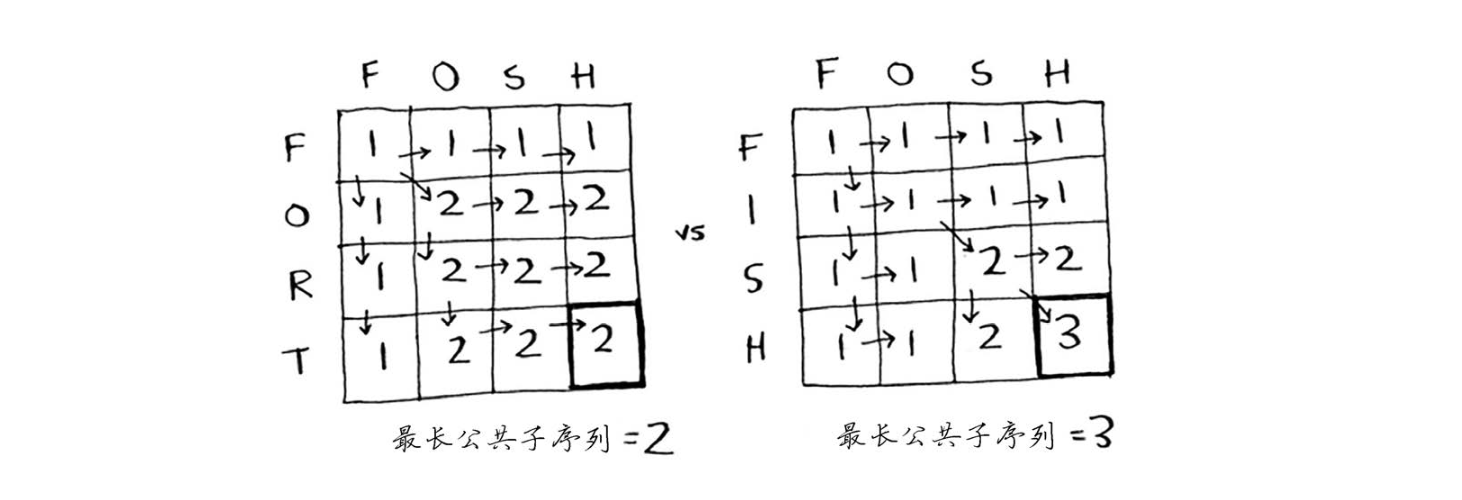 F O S H
F 1 → 1 → 1 → 1
O 1 2 → 2 → 2
R 1 2 → 2 → 2
T 1 2 → 2 → 2
最长公共子序列 = 2
vs
F O S H
F 1 → 1 → 1 → 1
I 1 → 1 → 1 → 1
S 1 → 1 2 → 2
H 1 → 1 2 3
最长公共子序列 = 3